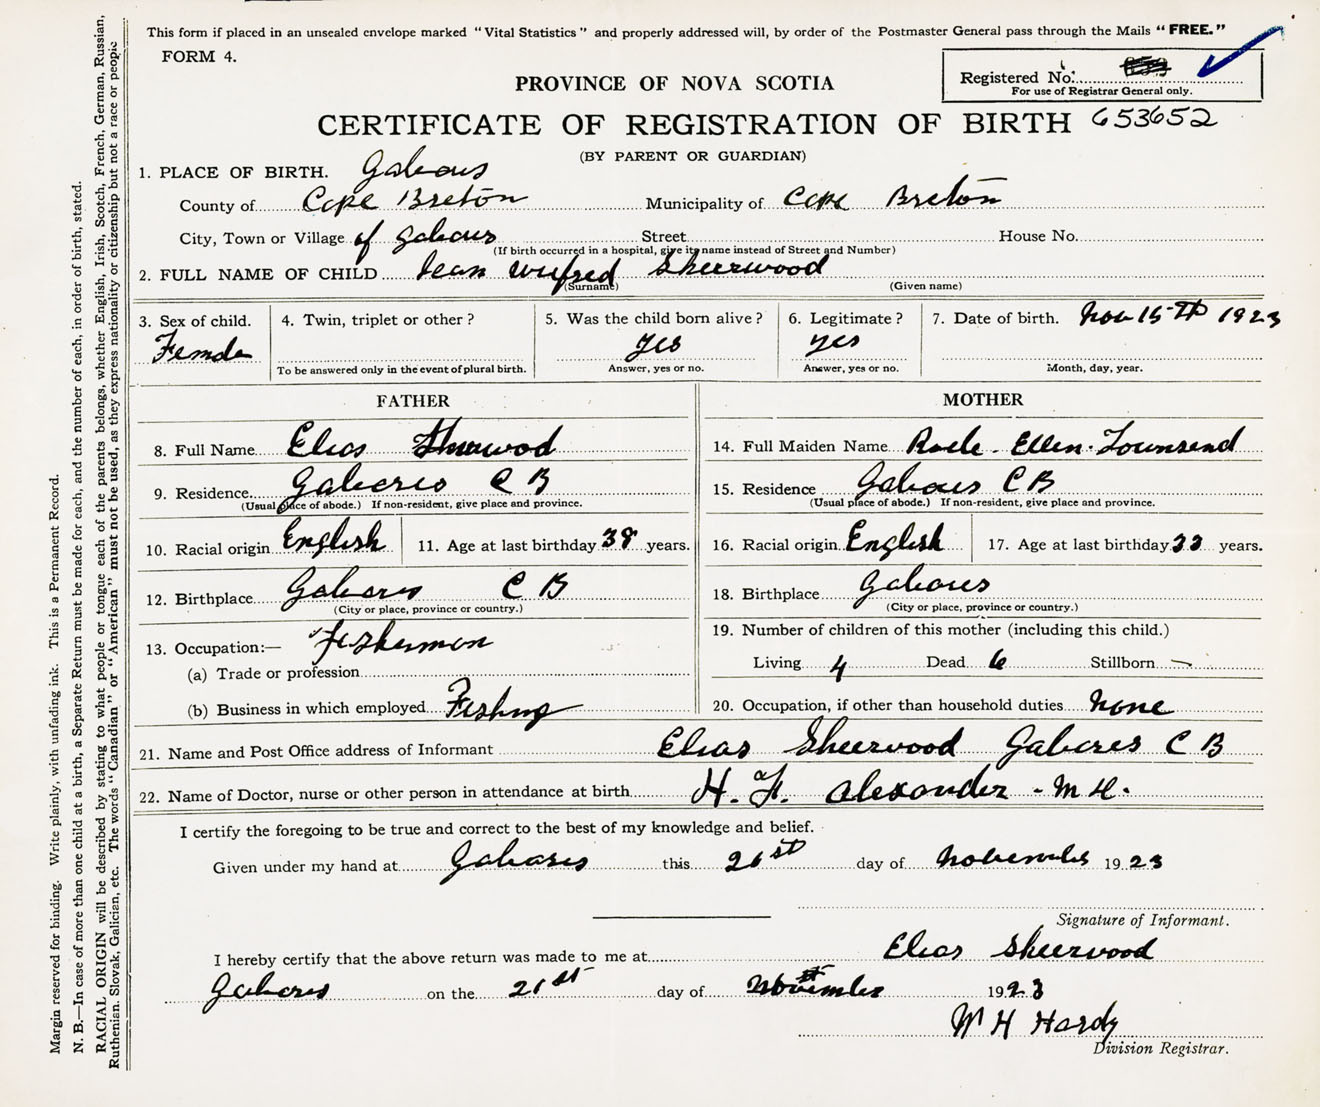 This form if placed in an unsealed envelope marked "Vital Statistics" and properly addressed will, by order of the Postmaster General pass through the Mails "FREE."
FORM 4.
Registered No.
For use of Registrar General only.
PROVINCE OF NOVA SCOTIA
CERTIFICATE OF REGISTRATION OF BIRTH 653652
(BY PARENT OR GUARDIAN)
1. PLACE OF BIRTH. Gabarus
County of Cape Breton Municipality of Cape Breton
City, Town or Village of Gabarus Street House No.
(If birth occurred in a hospital, give its name instead of Street and Number)
2. FULL NAME OF CHILD Jean Wilfred Sheerwood
(Surname) (Given name)
3. Sex of child. 4. Twin, triplet or other ? 5. Was the child born alive ? 6. Legitimate ? 7. Date of birth. Nov 15th 1923
Female yes yes
To be answered only in the event of plural birth. Answer, yes or no. Answer, yes or no. Month, day, year.
FATHER MOTHER
8. Full Name Elias Sherwood 14. Full Maiden Name Ellen Townsend
9. Residence Gabarus C B 15. Residence Gabarus C B
(Usual place of abode.) If non-resident, give place and province. (Usual place of abode.) If non-resident, give place and province.
10. Racial origin English 11. Age at last birthday 38 years. 16. Racial origin English 17. Age at last birthday 33 years.
12. Birthplace Gabarus C B 18. Birthplace Gabarus
(City or place, province or country.) (City or place, province or country.)
13. Occupation:— Fisherman 19. Number of children of this mother (including this child.)
(a) Trade or profession Living 4 Dead 6 Stillborn —
(b) Business in which employed Fishing 20. Occupation, if other than household duties None
21. Name and Post Office address of Informant Elias Sheerwood Gabarus C B
22. Name of Doctor, nurse or other person in attendance at birth H. F. Alexander - M D.
I certify the foregoing to be true and correct to the best of my knowledge and belief.
Given under my hand at Gabarus this 21st day of November 1923
Signature of Informant.
I hereby certify that the above return was made to me at Elias Sheerwood
Gabarus on the 21st day of November 1923
W H Hardy
Division Registrar.
Margin reserved for binding. Write plainly, with unfading ink. This is a Permanent Record.
N. B.—In case of more than one child at a birth, a Separate Return must be made for each, and the number of each, in order of birth, stated.
RACIAL ORIGIN will be described by stating to what people or tongue each of the parents belongs, whether English, Irish, Scotch, French, German, Russian,
Ruthenian, Slovak, Galician, etc. The words "Canadian" or "American" must not be used, as they express nationality or citizenship but not a race or people